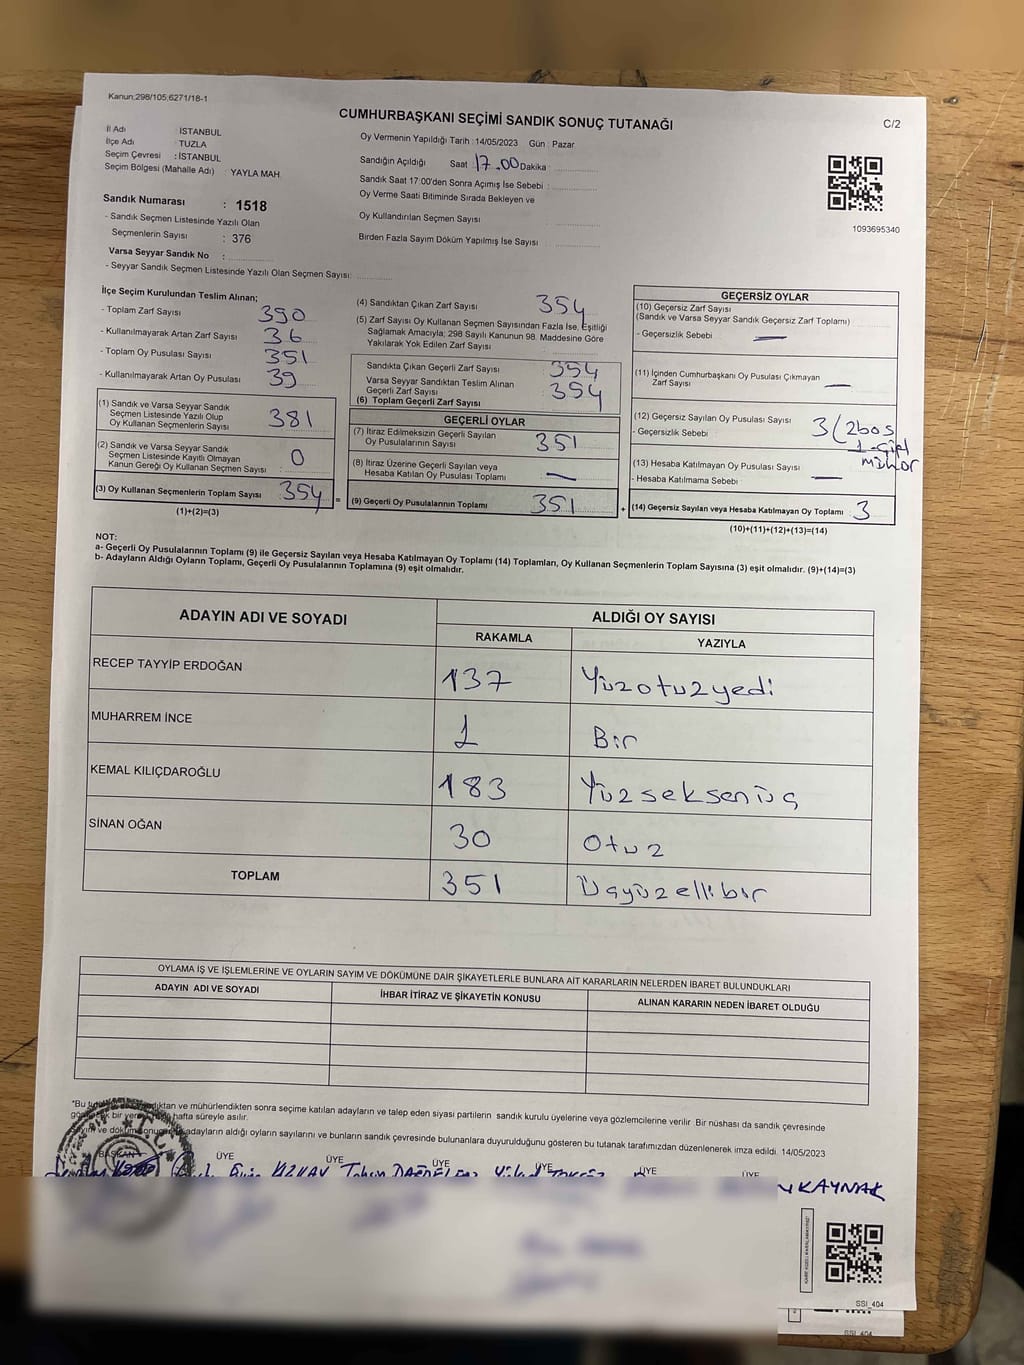 Kanun:298/105;6271/18-1
CUMHURBAŞKANI SEÇİMİ SANDIK SONUÇ TUTANAĞI
C/2
İl Adı : İSTANBUL
İlçe Adı : TUZLA
Seçim Çevresi : İSTANBUL
Seçim Bölgesi (Mahalle Adı) : YAYLA MAH.
Sandık Numarası : 1518
- Sandık Seçmen Listesinde Yazılı Olan
Seçmenlerin Sayısı : 376
Varsa Seyyar Sandık No :
- Seyyar Sandık Seçmen Listesinde Yazılı Olan Seçmen Sayısı:
Oy Vermenin Yapıldığı Tarih : 14/05/2023 Gün : Pazar
Sandığın Açıldığı Saat 17.00 Dakika
Sandık Saat 17:00'den Sonra Açımış İse Sebebi :
Oy Verme Saati Bitiminde Sırada Bekleyen ve
Oy Kullandırılan Seçmen Sayısı
Birden Fazla Sayım Döküm Yapılmış İse Sayısı
1093695340
İlçe Seçim Kurulundan Teslim Alınan;
- Toplam Zarf Sayısı 390
- Kullanılmayarak Artan Zarf Sayısı 36
- Toplam Oy Pusulası Sayısı 351
- Kullanılmayarak Artan Oy Pusulası 39
(1) Sandık ve Varsa Seyyar Sandık
Seçmen Listesinde Yazılı Olup
Oy Kullanan Seçmenlerin Sayısı 381
(2) Sandık ve Varsa Seyyar Sandık
Seçmen Listesinde Kayıtlı Olmayan
Kanun Gereği Oy Kullanan Seçmen Sayısı : 0
(3) Oy Kullanan Seçmenlerin Toplam Sayısı 354 =
(1)+(2)=(3)
(4) Sandıktan Çıkan Zarf Sayısı 354
(5) Zarf Sayısı Oy Kullanan Seçmen Sayısından Fazla İse, Eşitliği
Sağlamak Amacıyla; 298 Sayılı Kanunun 98. Maddesine Göre
Yakılarak Yok Edilen Zarf Sayısı
Sandıkta Çıkan Geçerli Zarf Sayısı 354
Varsa Seyyar Sandıktan Teslim Alınan
Geçerli Zarf Sayısı 354
(6) Toplam Geçerli Zarf Sayısı
GEÇERLİ OYLAR
(7) İtiraz Edilmeksizin Geçerli Sayılan
Oy Pusulalarının Sayısı 351
(8) İtiraz Üzerine Geçerli Sayılan veya
Hesaba Katılan Oy Pusulası Toplamı —
(9) Geçerli Oy Pusulalarının Toplamı 351 +
GEÇERSİZ OYLAR
(10) Geçersiz Zarf Sayısı
(Sandık ve Varsa Seyyar Sandık Geçersiz Zarf Toplamı)
- Geçersizlik Sebebi —
(11) İçinden Cumhurbaşkanı Oy Pusulası Çıkmayan
Zarf Sayısı —
(12) Geçersiz Sayılan Oy Pusulası Sayısı 3 (2 boş
- Geçersizlik Sebebi 1-çift
mühür
(13) Hesaba Katılmayan Oy Pusulası Sayısı
- Hesaba Katılmama Sebebi —
(14) Geçersiz Sayılan veya Hesaba Katılmayan Oy Toplamı 3
(10)+(11)+(12)+(13)=(14)
NOT:
a- Geçerli Oy Pusulalarının Toplamı (9) ile Geçersiz Sayılan veya Hesaba Katılmayan Oy Toplamı (14) Toplamları, Oy Kullanan Seçmenlerin Toplam Sayısına (3) eşit olmalıdır. (9)+(14)=(3)
b- Adayların Aldığı Oyların Toplamı, Geçerli Oy Pusulalarının Toplamına (9) eşit olmalıdır.
ADAYIN ADI VE SOYADI
ALDIĞI OY SAYISI
RAKAMLA YAZIYLA
RECEP TAYYİP ERDOĞAN 137 Yüzotuzyedi
MUHARREM İNCE 1 Bir
KEMAL KILIÇDAROĞLU 183 Yüzseksenüç
SİNAN OĞAN 30 Otuz
TOPLAM 351 Üçyüzellibir
OYLAMA İŞ VE İŞLEMLERİNE VE OYLARIN SAYIM VE DÖKÜMÜNE DAİR ŞİKAYETLERLE BUNLARA AİT KARARLARIN NELERDEN İBARET BULUNDUKLARI
ADAYIN ADI VE SOYADI İHBAR İTİRAZ VE ŞİKAYETİN KONUSU ALINAN KARARIN NEDEN İBARET OLDUĞU
"Bu mühürlendikten sonra seçime katılan adayların ve talep eden siyasi partilerin sandık kurulu üyelerine veya gözlemcilerine verilir. Bir nüshası da sandık çevresinde
bir hafta süreyle asılır.
adayların aldığı oyların sayılarını ve bunların sandık çevresinde bulunanlara duyurulduğunu gösteren bu tutanak tarafımızdan düzenlenerek imza edildi. 14/05/2023
T.C.
BAŞKAN ÜYE ÜYE ÜYE ÜYE ÜYE ÜYE
KAYNAK
SSI_404
SSI_404